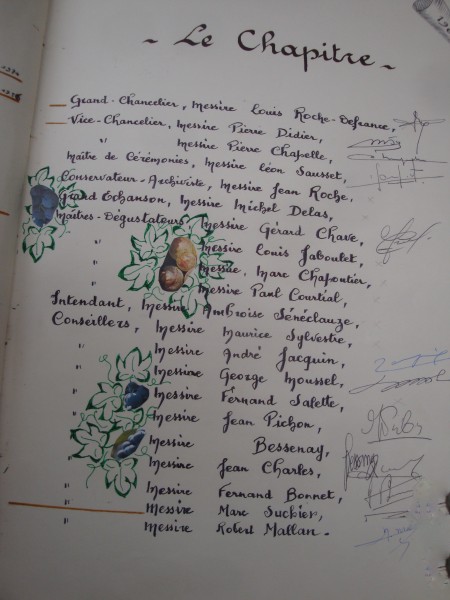 - Le Chapitre -
Grand-Chancelier, Messire Louis Roche-Defrance,
Vice-Chancelier, Messire Pierre Didier,
" Messire Pierre Chapelle,
Maître de Cérémonies, Messire Léon Sausset,
Conservateur-Archiviste, Messire Jean Roche,
Grand Echanson, Messire Michel Delas,
Maîtres-Dégustateurs Messire Gérard Chave,
" Messire Louis Jaboulet,
" Messire, Marc Chapoutier,
" Messire Paul Courtial,
Intendant, Messire Ambroise Sénéclauze,
Conseillers, Messire Maurice Sylvestre,
" Messire André Jacquin,
" Messire George Moussel,
" Messire Fernand Salette,
" Messire Jean Pichon,
" Messire Bessenay,
" Messire Jean Charles,
" Messire Fernand Bonnet,
" Messire Marc Suchier,
" Messire Robert Mallan.-